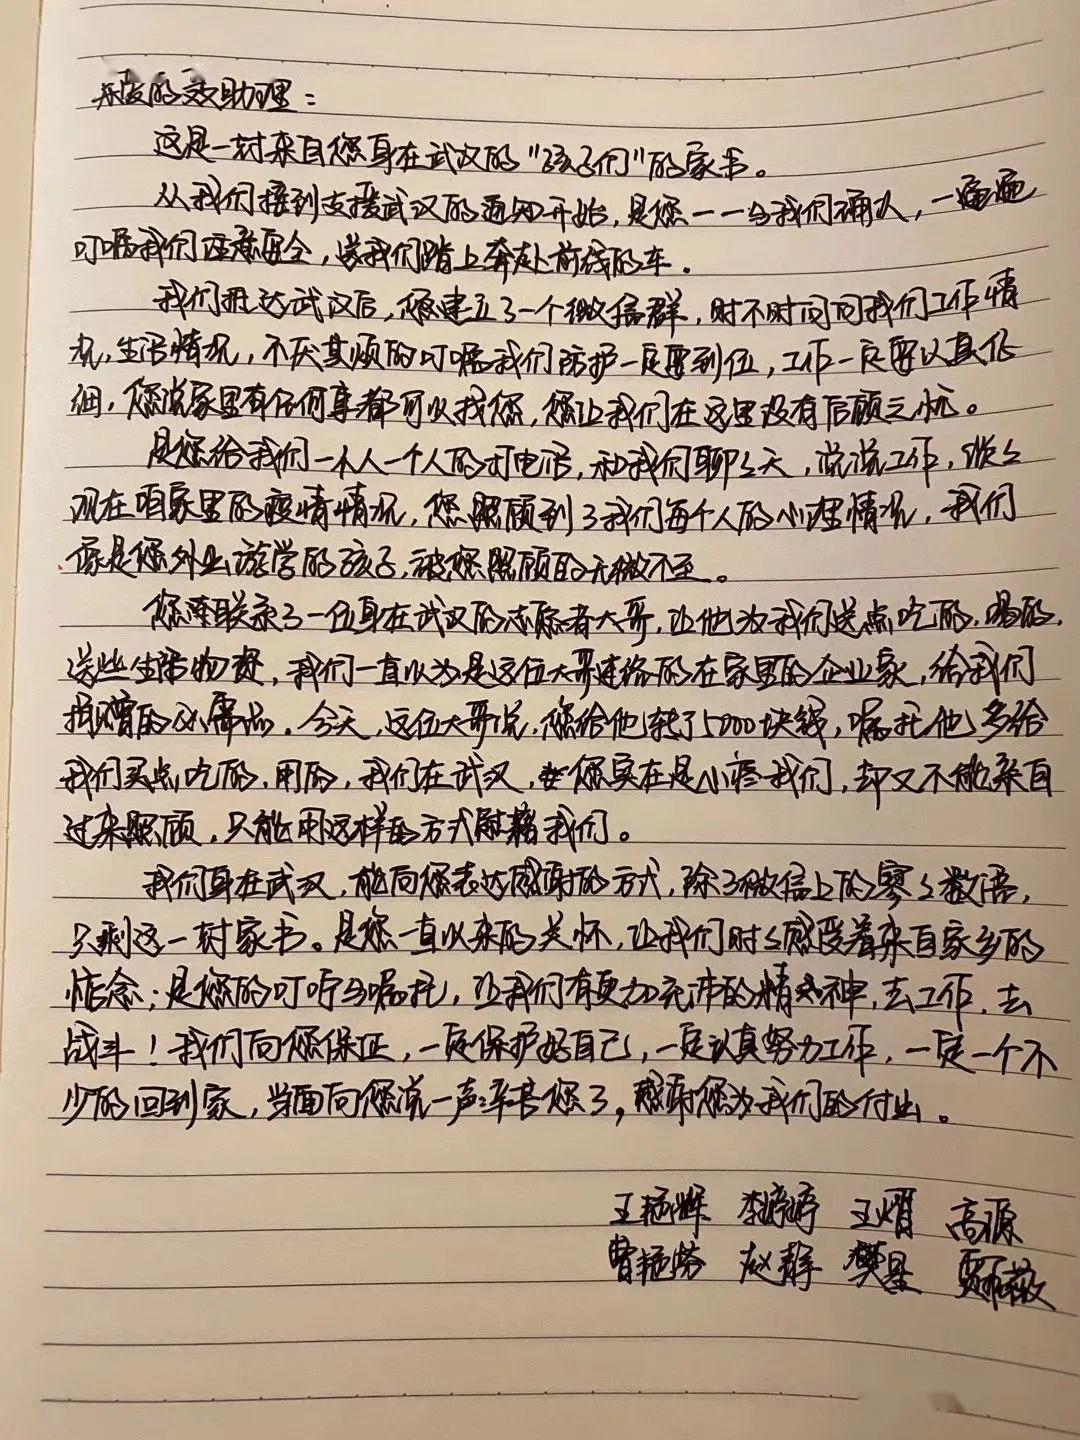 亲爱的袁助理：
这是一封来自您身在武汉的“孩子们”的家书。
从我们接到支援武汉的通知开始，是您一一与我们确认，一遍遍
叮嘱我们注意安全，送我们踏上奔赴前线的车。
我们抵达武汉后，您建立了一个微信群，时不时问问我们工作情
况，生活情况，不厌其烦的叮嘱我们防护一定要到位，工作一定要认真仔
细，您说家里有任何事都可以找您，您让我们在这里没有后顾之忧。
是您给我们一个人一个人的打电话，和我们聊々天，说说工作，谈々
现在咱家里的疫情情况，您照顾到了我们每个人的心理情况，我们
像是您外出游学的孩子，被您照顾的无微不至。
您连联系了一位身在武汉的志愿者大哥，让他为我们送点吃的，喝的，
送些生活物资，我们一直以为是这位大哥连络的在家里的企业家，给我们
捐赠的必需品。今天，这位大哥说，您给他转了5000块钱，嘱托他多给
我们买点吃的，用的，我们在武汉，您实在是心疼我们，却又不能亲自
过来照顾，只能用这样的方式慰藉我们。
我们身在武汉，能向您表达感谢的方式，除了微信上的寥々数语，
只剩这一封家书。是您一直以来的关怀，让我们时々感受着来自家乡的
惦念；是您的叮咛与嘱托，让我们有更加充沛的精神，去工作，去
战斗！我们向您保证，一定保护好自己，一定认真努力工作，一定一个不
少的回到家，当面向您说一声：辛苦您了，感谢您为我们的付出。
王艳辉 李婷婷 王熠 高源
曹艳芬 赵静 樊星 贾丽敏